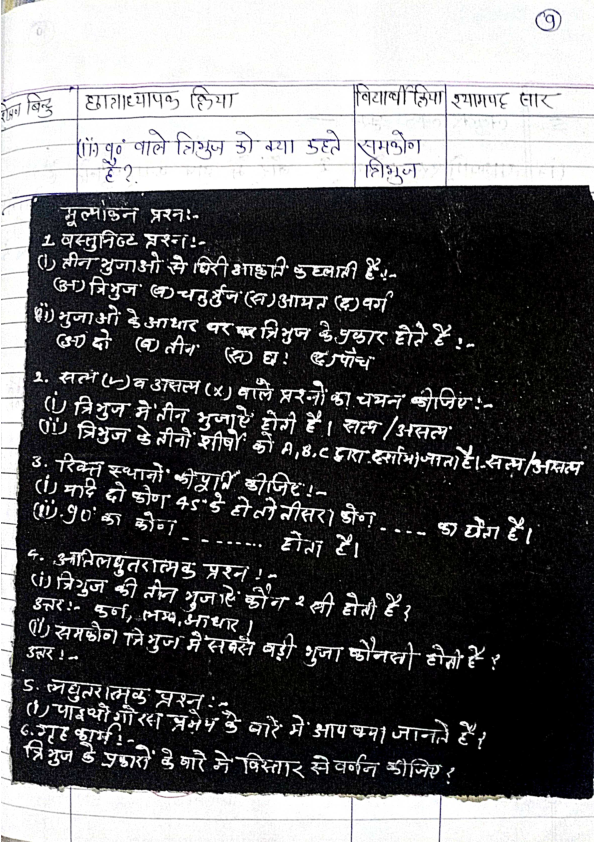 9
शिक्षण बिन्दु छात्राध्यापक क्रिया विद्यार्थी क्रिया श्यामपट्ट सार
(ii) 90° वाले त्रिभुज को क्या कहते समकोण
है? त्रिभुज
मूल्यांकन प्रश्न:-
1. वस्तुनिष्ट प्रश्न:-
(i) तीन भुजाओं से घिरी आकृति कहलाती है:-
(अ) त्रिभुज (ब) चतुर्भुज (स) आयत (द) वर्ग
(ii) भुजाओं के आधार पर त्रिभुज के प्रकार होते है:-
(अ) दो (ब) तीन (स) छः (द) पाँच
2. सत्य (✓) व असत्य (x) वाले प्रश्नों का चयन कीजिए:-
(i) त्रिभुज में तीन भुजाऐं होती है। सत्य/असत्य
(ii) त्रिभुज के तीनों शीर्षों को A,B,C द्वारा दर्शाया जाता है। सत्य/असत्य
3. रिक्त स्थानों की पूर्ति कीजिए:-
(i) यदि दो कोण 45° के हो तो तीसरा कोण ---- का होता है।
(ii) 90° का कोण --------- होता है।
4. अतिलघुतरात्मक प्रश्न:-
(i) त्रिभुज की तीन भुजाऐं कौन 2 सी होती है?
उत्तर:- कर्ण, लम्ब, आधार।
(ii) समकोण त्रिभुज में सबसे बड़ी भुजा कौनसी होती है?
उत्तर:-
5. लघुतरात्मक प्रश्न:-
(i) पाइथागोरस प्रमेय के बारे में आप क्या जानते है?
6. गृह कार्य:-
त्रिभुज के प्रकारों के बारे में विस्तार से वर्णन कीजिए?